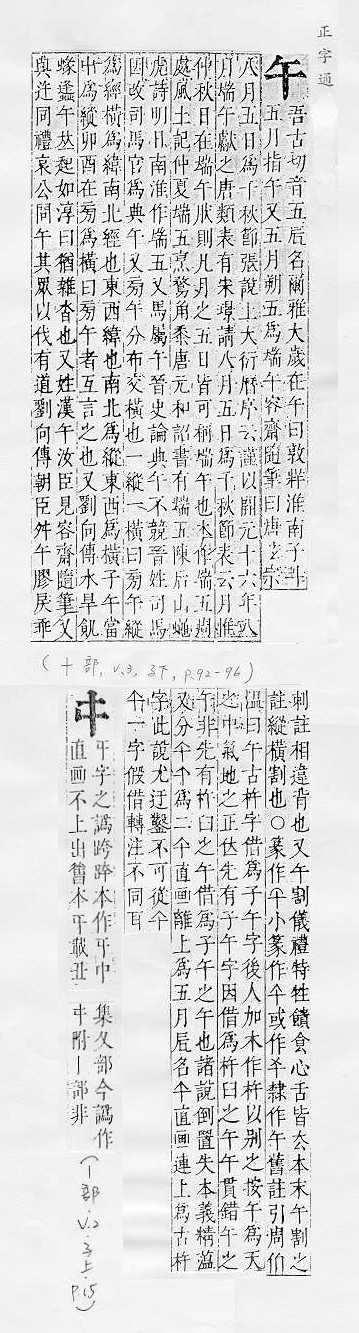 正字通
午
吾古切音五辰名爾雅大歲在午曰敦牂淮南子斗
五月指午又五月朔五爲端午容齋隨筆曰唐玄宗
八月五日爲千秋節張說上大衍曆序云謹以開元十六年八
月端午獻之唐類表有宋璟請八月五日爲千秋節表云月惟
仲秋日在端午狀則凡月之五日皆可稱端午也本作端五周
處風土記仲夏端五烹鶩角黍唐元和詔書有端五陳后山蠅
虎詩明日南淮作端五又馬屬午晉史論典午不競晉姓司馬
因改司馬官爲典午又旁午分布交橫也一縱一橫曰旁午縱
爲經橫爲緯南北經也東西緯也南北爲縱東西爲橫子午當
中爲縱卯酉在旁爲橫曰旁午者互言之也又劉向傳水旱飢
蝝螽午蠭起如淳曰猶雜沓也又姓漢午汝臣見容齋隨筆又
與迕同禮哀公問午其眾以伐有道劉向傳朝臣舛午膠戾乖
(十部, v.3, 子下, p.92-96)
刺註相違背也又午割儀禮特牲饋食心舌皆去本末午割之
註縱橫割也○篆作午小篆作午或作 隸作午舊註引周伯
溫曰午古杵字借爲子午字後人加木作杵以別之按午爲天
之中氣地之正位先有子午字因借爲杵臼之午午貫錯午之
午非先有杵臼之午借爲子午之午也諸說倒置失本義精蘊
又分 爲二 直畫離上爲五月辰名 直畫連上爲古杵
字此說尤迂鑿不可從
一字假借轉注不同耳
㐄字之譌跨跨本作㐄中
直画不上出舊本㐄載丑
集夂部今譌作
附丨部非
(丨部, v.2, 子上, p.15)